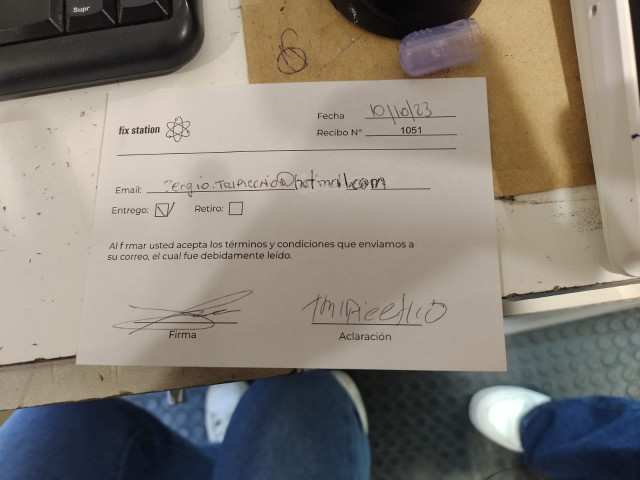 Supr
fix station
Fecha 10/10/23
Recibo N° 1051
Email: Sergio.TRIPICCHIO@hotmail.com
Entrego: Retiro:
Al f rmar usted acepta los términos y condiciones que enviamos a
su correo, el cual fue debidamente leído.
TRIPICCHIO
Firma Aclaración